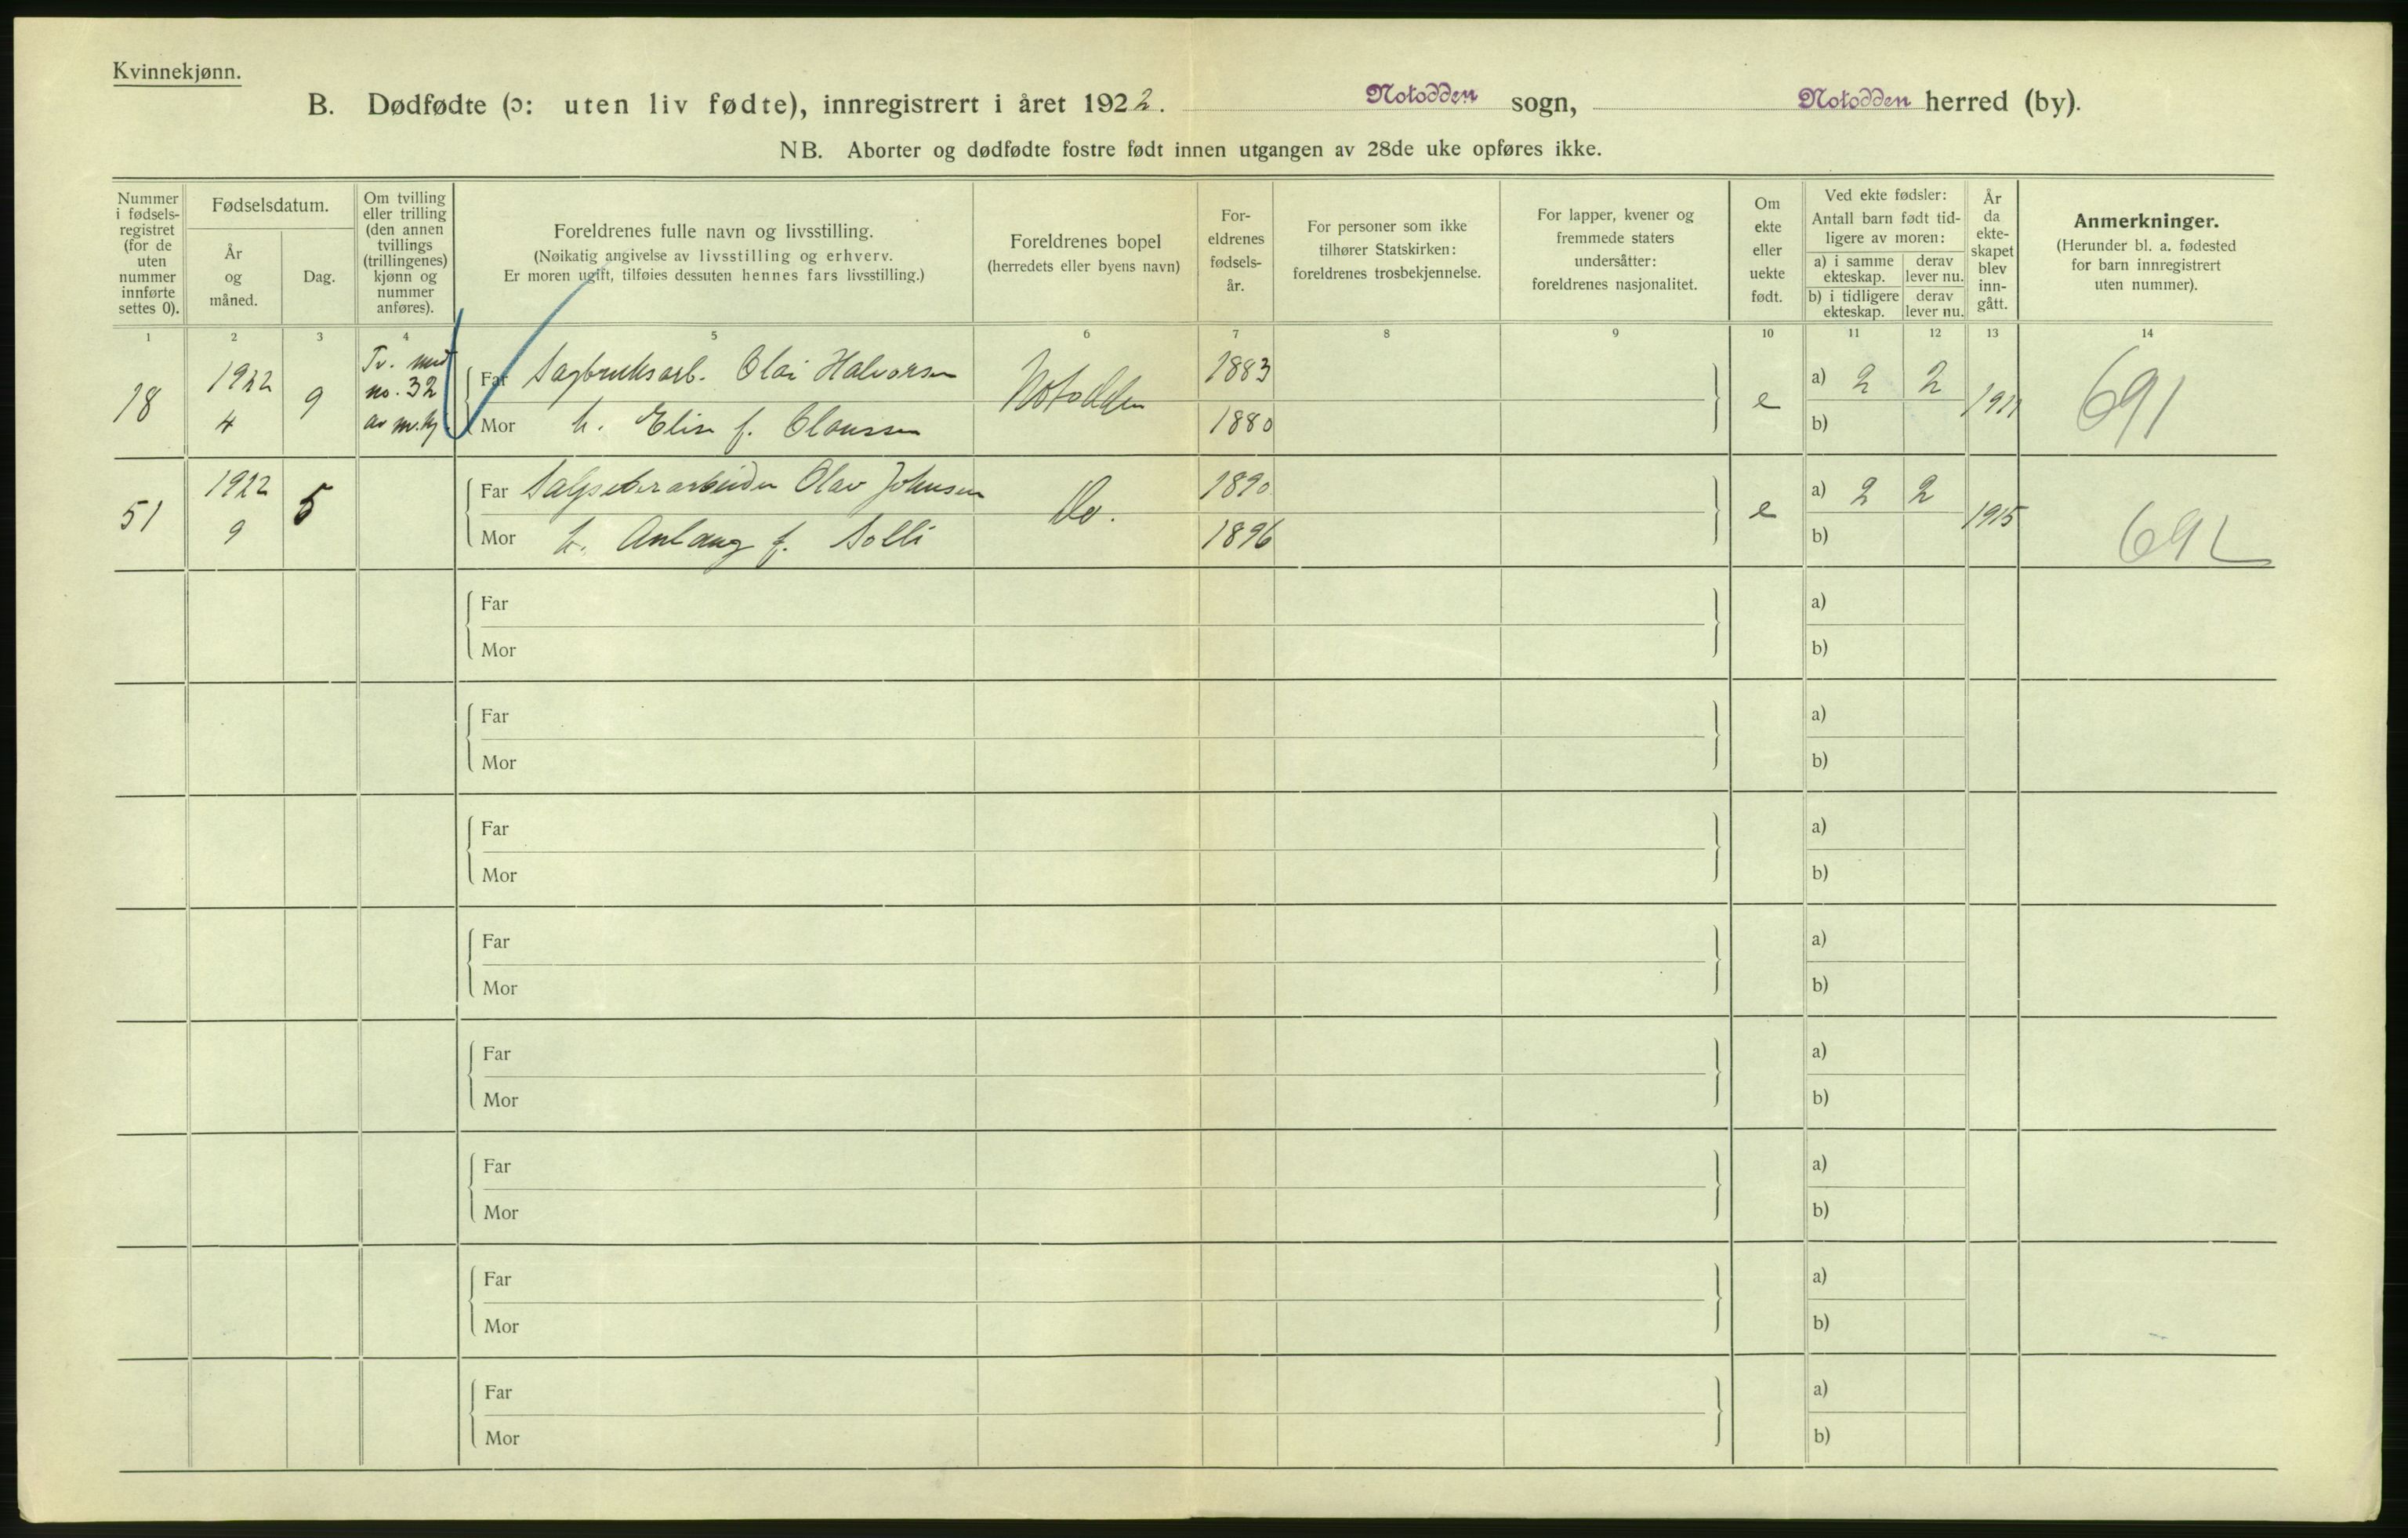 Kvinnekjønn.
B. Dødfødte (ɔ: uten liv fødte), innregistrert i året 1922. Notodden sogn, Notodden herred (by).
NB. Aborter og dødfødte fostre født innen utgangen av 28de uke opføres ikke.
Nummer i fødsels-registret (for de uten nummer innførte settes 0).
Fødselsdatum.
År og måned.
Dag.
Om tvilling eller trilling (den annen tvillings (trillingenes) kjønn og nummer anføres).
Foreldrenes fulle navn og livsstilling.
(Nøikatig angivelse av livsstilling og erhverv.
Er moren ugift, tilføies dessuten hennes fars livsstilling.)
Foreldrenes bopel
(herredets eller byens navn)
For-eldrenes fødsels-år.
For personer som ikke tilhører Statskirken: foreldrenes trosbekjennelse.
For lapper, kvener og fremmede staters undersåtter: foreldrenes nasjonalitet.
Om ekte eller uekte født.
Ved ekte fødsler:
Antall barn født tid-ligere av moren:
a) i samme ekteskap.
derav lever nu.
b) i tidligere ekteskap.
derav lever nu.
År da ekte-skapet blev inn-gått.
Anmerkninger.
(Herunder bl. a. fødested for barn innregistrert uten nummer).
1 2 3 4 5 6 7 8 9 10 11 12 13 14
18 1922 4 9 Tv. med no. 32 av m.kj. Far Sagbruksarb. Olai Halvorsen Notodden 1883 e a) 2 2 1911 691
Mor h. Elise f. Claussen 1880 b)
51 1922 9 5 Far Salpeterarbeider Olav Johnsen Do. 1890 e a) 2 2 1915 692
Mor h. Anlaug f. Solli 1896 b)
Far a)
Mor b)
Far a)
Mor b)
Far a)
Mor b)
Far a)
Mor b)
Far a)
Mor b)
Far a)
Mor b)
Far a)
Mor b)
Far a)
Mor b)